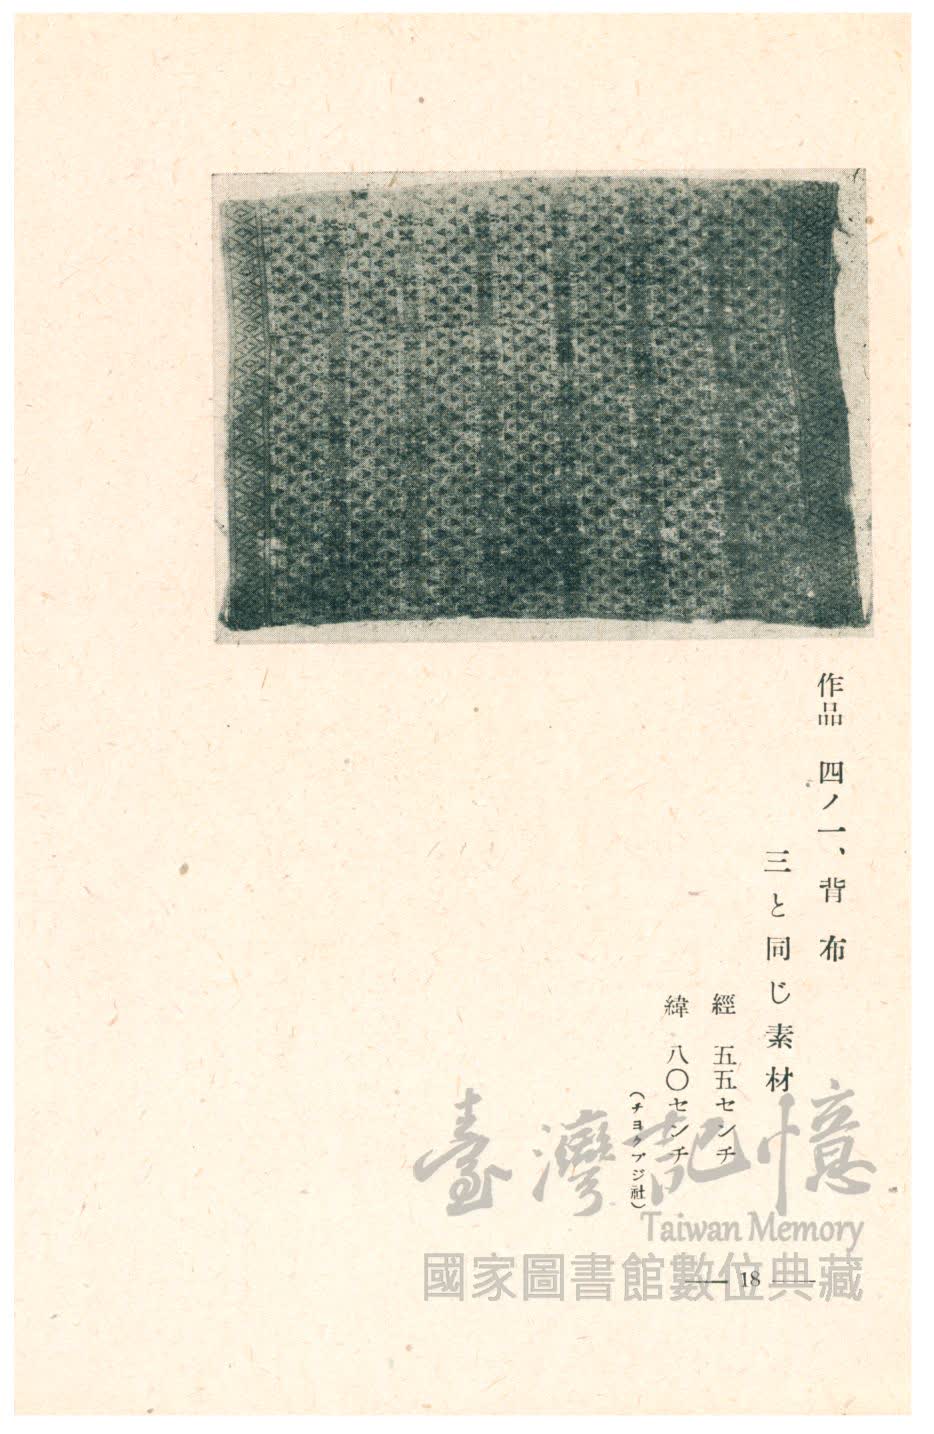 作品　四ノ一、背布
三と同じ素材
經　五五センチ
緯　八〇センチ
(チヨクブジ社)
臺灣記憶
Taiwan Memory
國家圖書館數位典藏
18